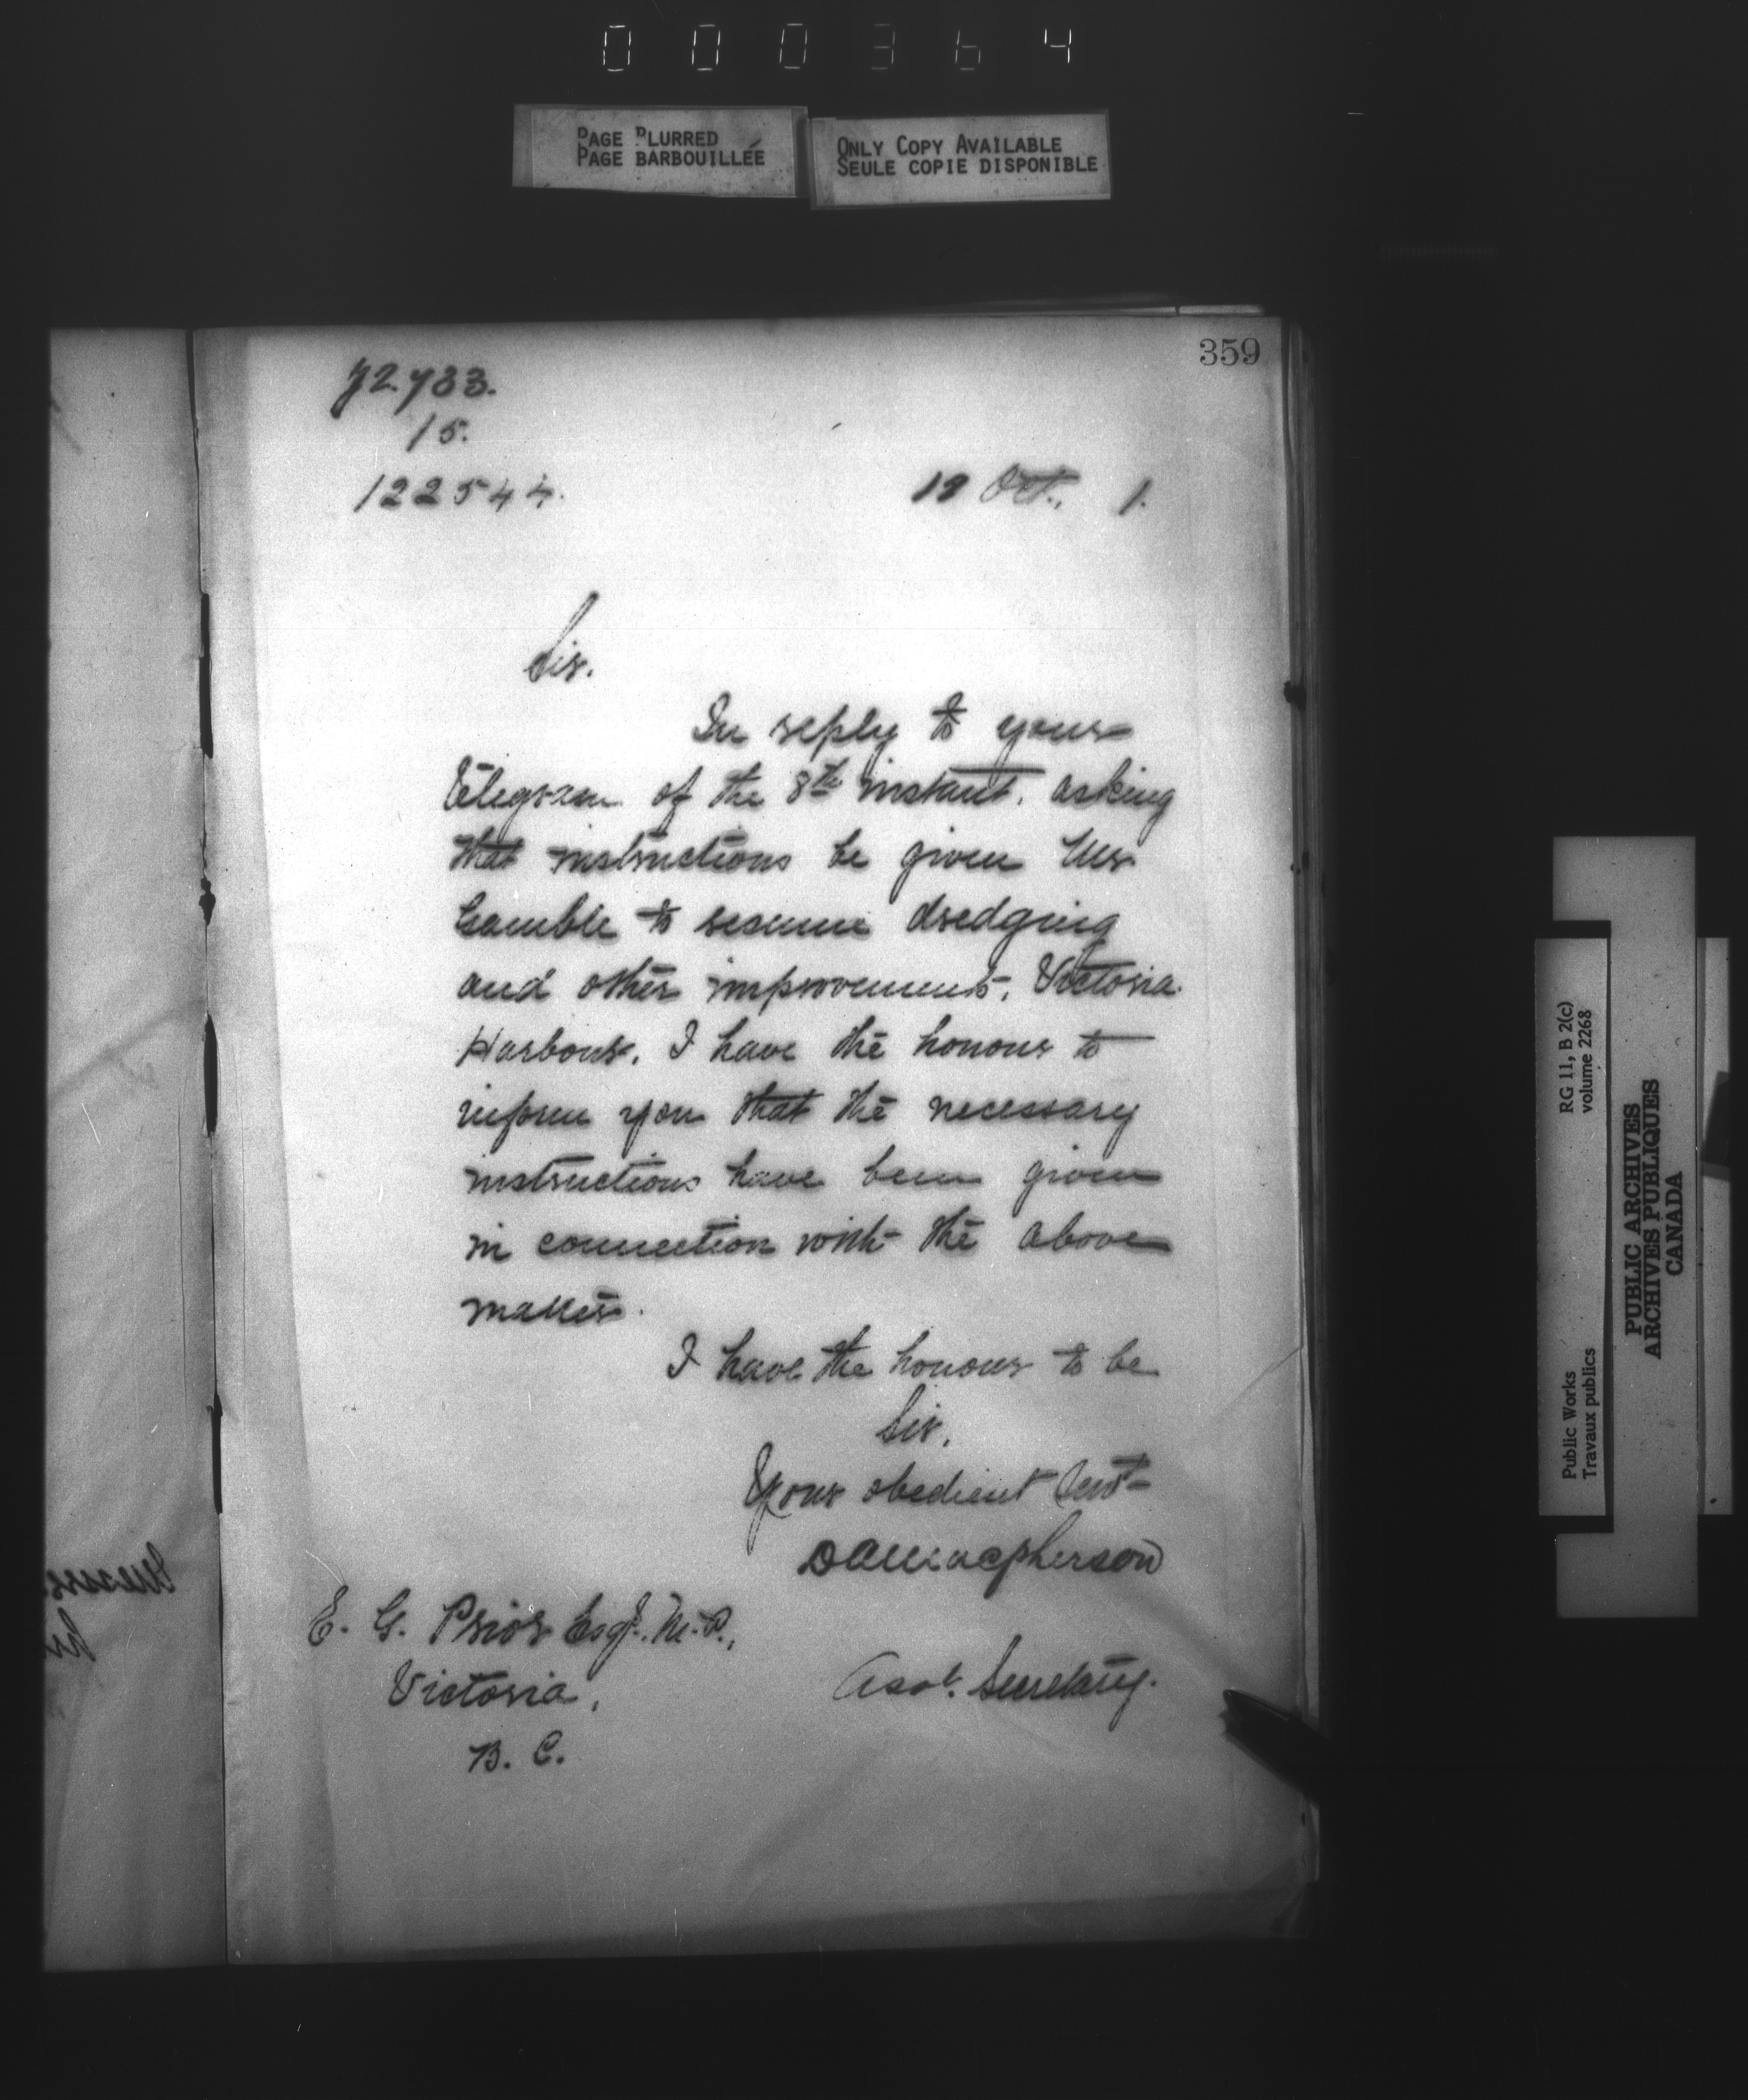 000364
PAGE BLURRED
PAGE BARBOUILLÉE
ONLY COPY AVAILABLE
SEULE COPIE DISPONIBLE
359
72733.
15.
122544.
12 Oct., 1.
Sir.
In reply to your
telegram of the 8th instant, asking
that instructions be given Mr.
Gamble to resume dredging
and other improvements, Victoria
Harbour. I have the honour to
inform you that the necessary
instructions have been given
in connection with the above
matter.
I have the honour to be
Sir,
Your obedient Servt
DAMacpherson
E. G. Prior Esqr. M.P.,
Asst. Secretary.
Victoria,
B. C.
Public Works
Travaux publics
RG 11, B 2(c)
volume 2268
PUBLIC ARCHIVES
ARCHIVES PUBLIQUES
CANADA